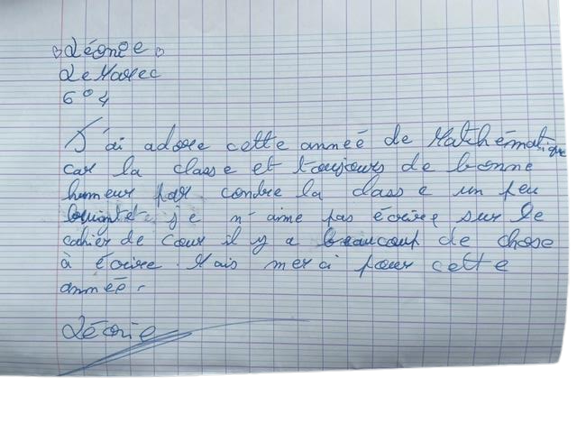 Léonie
Le Marec
6° 4
J'ai adore cette année de Mathématique
car la classe et toujours de bonne
humeur par contre la class e un peu
bruiante je n'aime pas écrire sur le
cahier de cour il y a beaucoup de chose
à écrire. Mais merci pour cette
année.
Léonie